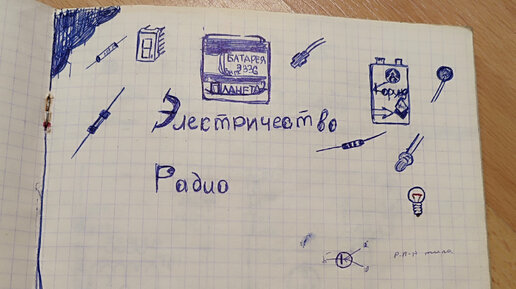 БАТАРЕЯ
3336
ПЛАНЕТА
Корунд
Электричество
Радио
р-п-р типа